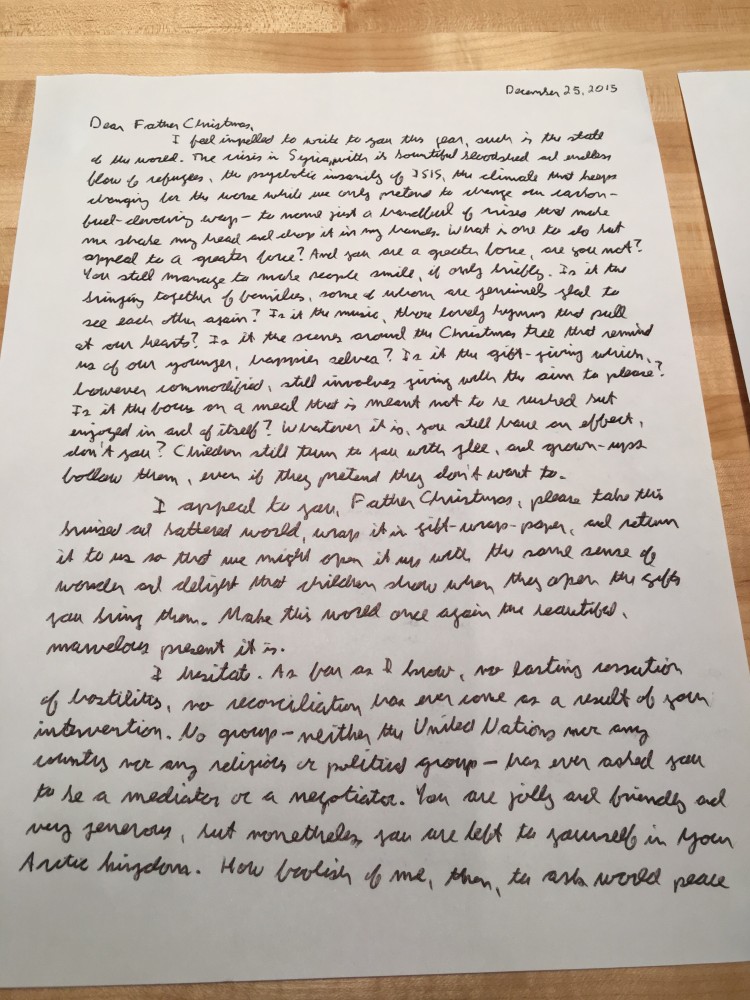 December 25, 2015
Dear Father Christmas,
I feel impelled to write to you this year, such is the state
of the world. The crisis in Syria, with its bountiful bloodshed and endless
flow of refugees, the psychotic insanity of ISIS, the climate that keeps
changing for the worse while we only pretend to change our carbon-
fuel-devouring ways — to name just a handful of crises that make
me shake my head and drop it in my hands. What is one to do but
appeal to a greater force? And you are a greater force, are you not?
You still manage to make people smile, if only briefly. Is it the
bringing together of families, some of whom are genuinely glad to
see each other again? Is it the music, those lovely hymns that pull
at our hearts? Is it the scenes around the Christmas tree that remind
us of our younger, happier selves? Is it the gift-giving which,
however commodified, still involves giving with the aim to please?
Is it the focus on a meal that is meant not to be rushed but
enjoyed in and of itself? Whatever it is, you still have an effect,
don't you? Children still turn to you with glee, and grown-ups
follow them, even if they pretend they don't want to.
I appeal to you, Father Christmas, please take this
bruised and battered world, wrap it in gift-wrap-paper, and return
it to us so that we might open it up with the same sense of
wonder and delight that children show when they open the gifts
you bring them. Make this world once again the beautiful,
marvelous present it is.
I hesitate. As far as I know, no lasting cessation
of hostilities, no reconciliation has ever come as a result of your
intervention. No group — neither the United Nations nor any
country nor any religious or political group — has ever asked you
to be a mediator or a negotiator. You are jolly and friendly and
very generous, but nonetheless you are left to yourself in your
Arctic kingdom. How foolish of me, then, to ask world peace